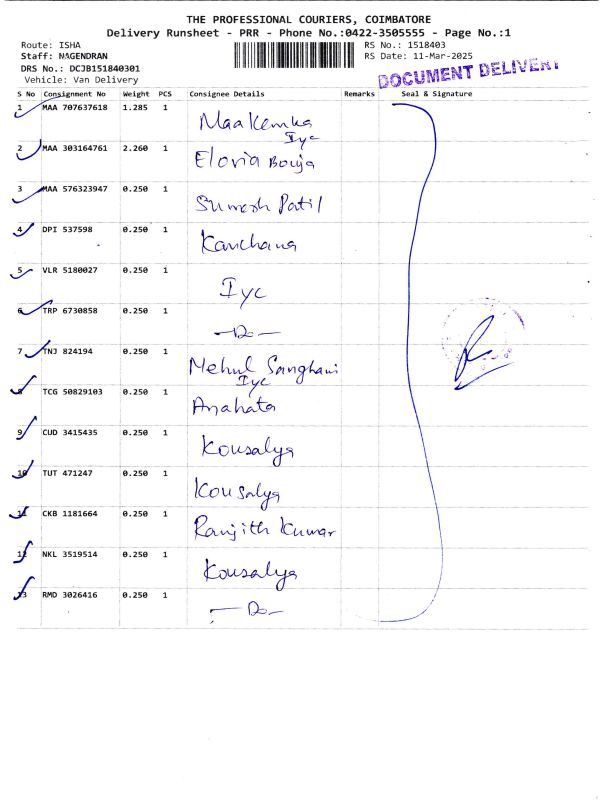 THE PROFESSIONAL COURIERS, COIMBATORE
Delivery Runsheet - PRR - Phone No.:0422-3505555 - Page No.:1
Route: ISHA
RS No.: 1518403
Staff: NAGENDRAN
RS Date: 11-Mar-2025
DRS No.: DCJB151840301
Vehicle: Van Delivery
DOCUMENT DELIVERY
S No Consignment No Weight PCS Consignee Details Remarks Seal & Signature
1 MAA 707637618 1.285 1
Iyc
2 MAA 303164761 2.260 1 Eloria Bouja
3 MAA 576323947 0.250 1 Sumesh Patil
4 DPI 537598 0.250 1 Kanchana
5 VLR 5180027 0.250 1 Iyc
6 TRP 6730858 0.250 1 -Do-
7 TNJ 824194 0.250 1 Mehul Sanghani
Iyc
8 TCG 50829103 0.250 1 Anahata
9 CUD 3415435 0.250 1 Kousalya
10 TUT 471247 0.250 1 Kousalya
11 CKB 1181664 0.250 1 Ranjith Kumar
12 NKL 3519514 0.250 1 Kousalya
13 RMD 3026416 0.250 1 -Do-